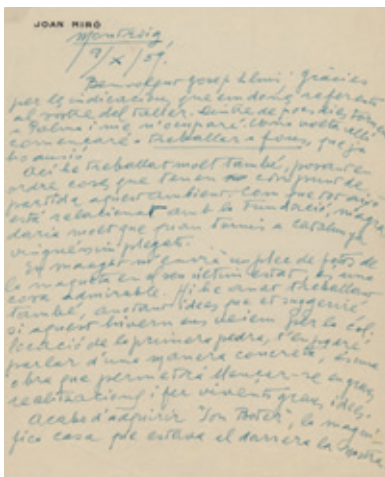 JOAN MIRÓ
Montroig,
9/X/59.
Benvolgut Josep Lluís: gràcies
per les indicacions que em dones referents
al sostre del taller. Dintre de pocs dies torno
a Palma i me n'ocuparé. Una volta allí
començaré a treballar a fons, que ja
ho ansio.
Ací he treballat molt també, posant en
ordre coses que tenen com punt de
partida aquest ambient. Com que tot això
està relacionat amb la Fundació, m'agra
daria molt que quan tornis a Catalunya
vinguéssim plegats.
En Maeght m'envià un plec de fotos de
la maqueta en el seu últim estat, és una
cosa admirable. Hi he anat treballant
també, anotant idees que et suggeriré
si aquest hivern ens veiem per la col.
locació de la primera pedra, t'en podré
parlar d'una manera concreta, és una
obra que permetrà llençar-se en grans
realitzacions i fer vivents grans ideals.
Acabo d'adquirir "Son Boter", la magní
fica casa que estava al darrera la nostra